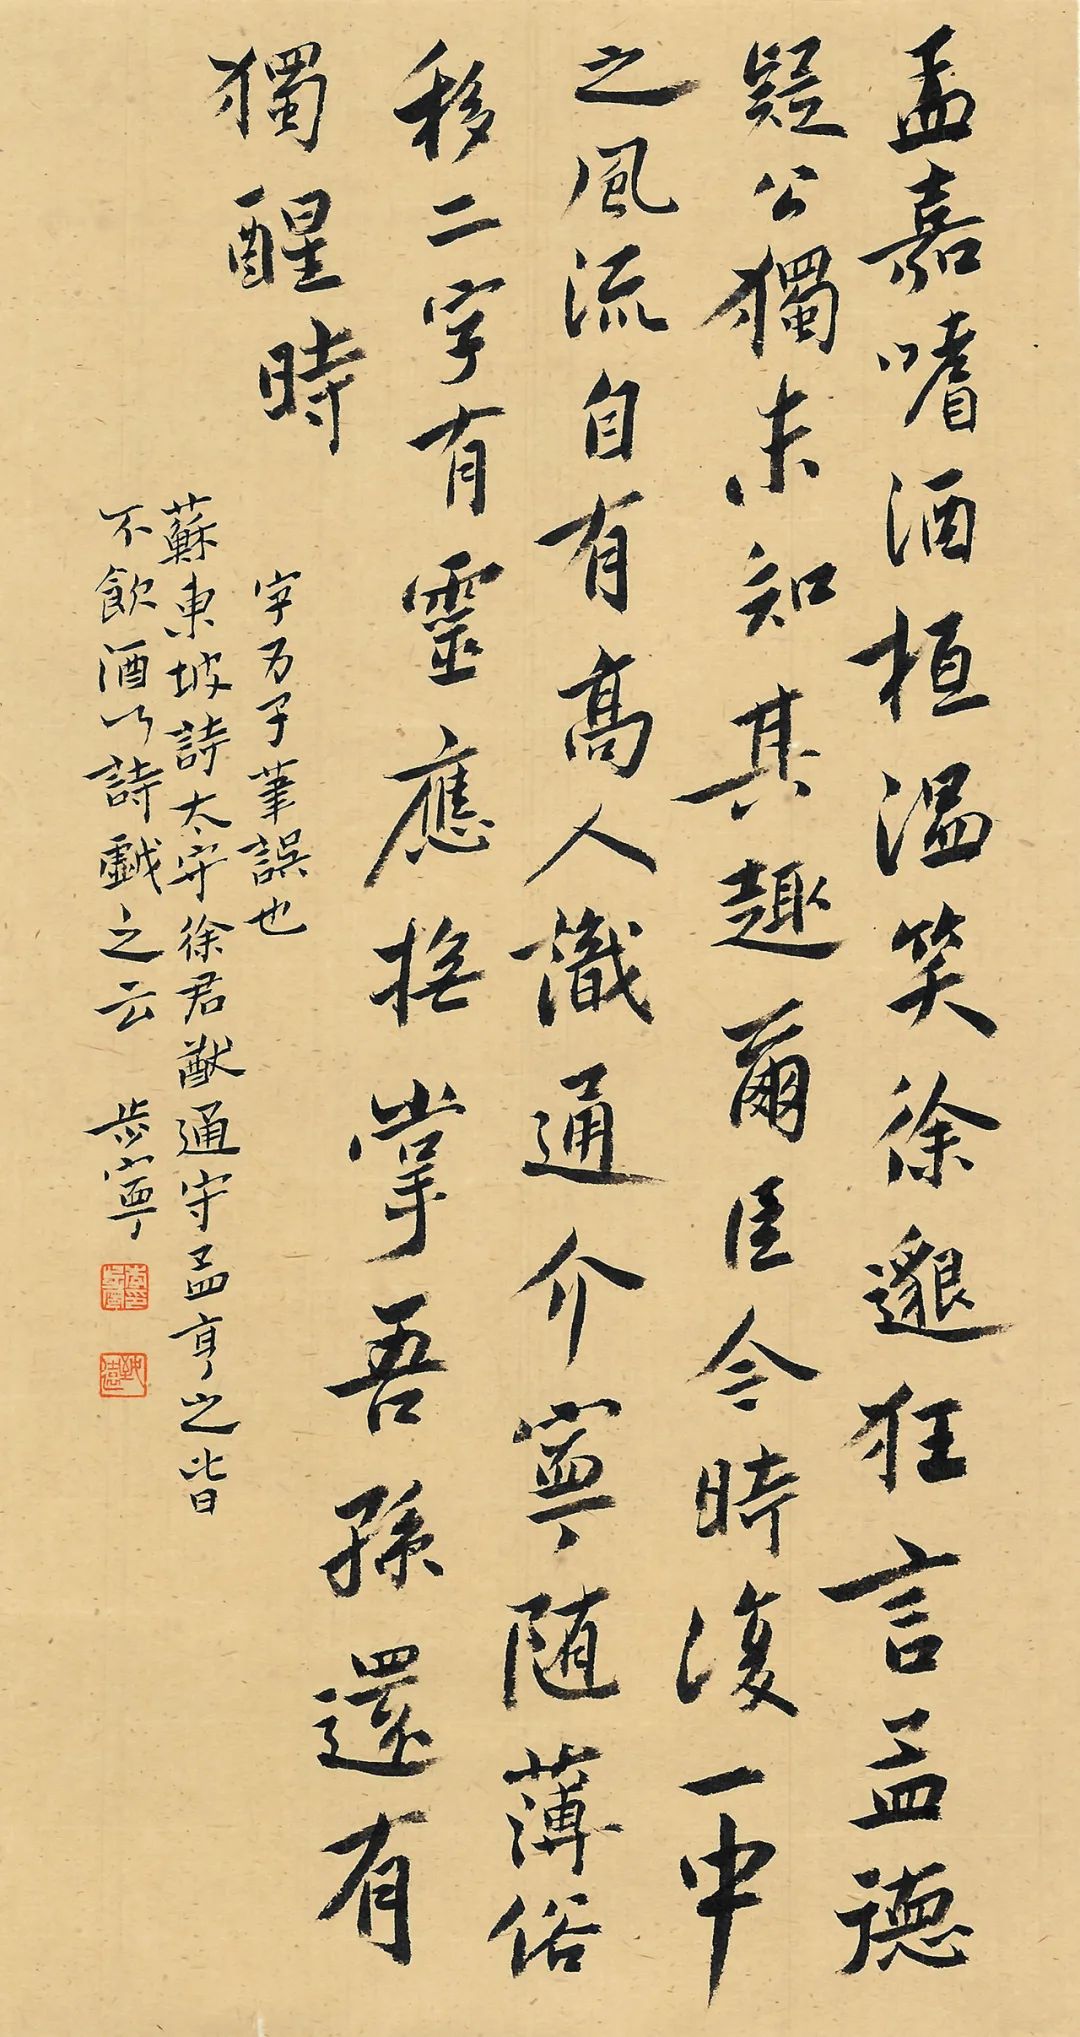 孟嘉嗜酒桓溫笑徐邈狂言孟德
疑公獨未知其趣爾臣今時復一中
之風流自有高人識通介寧随薄俗
移二字有靈應撫掌吾孫還有
獨醒時
字乃子筆誤也
蘇東坡詩太守徐君猷通守孟亨之皆
不飲酒以詩戲之云 步寧